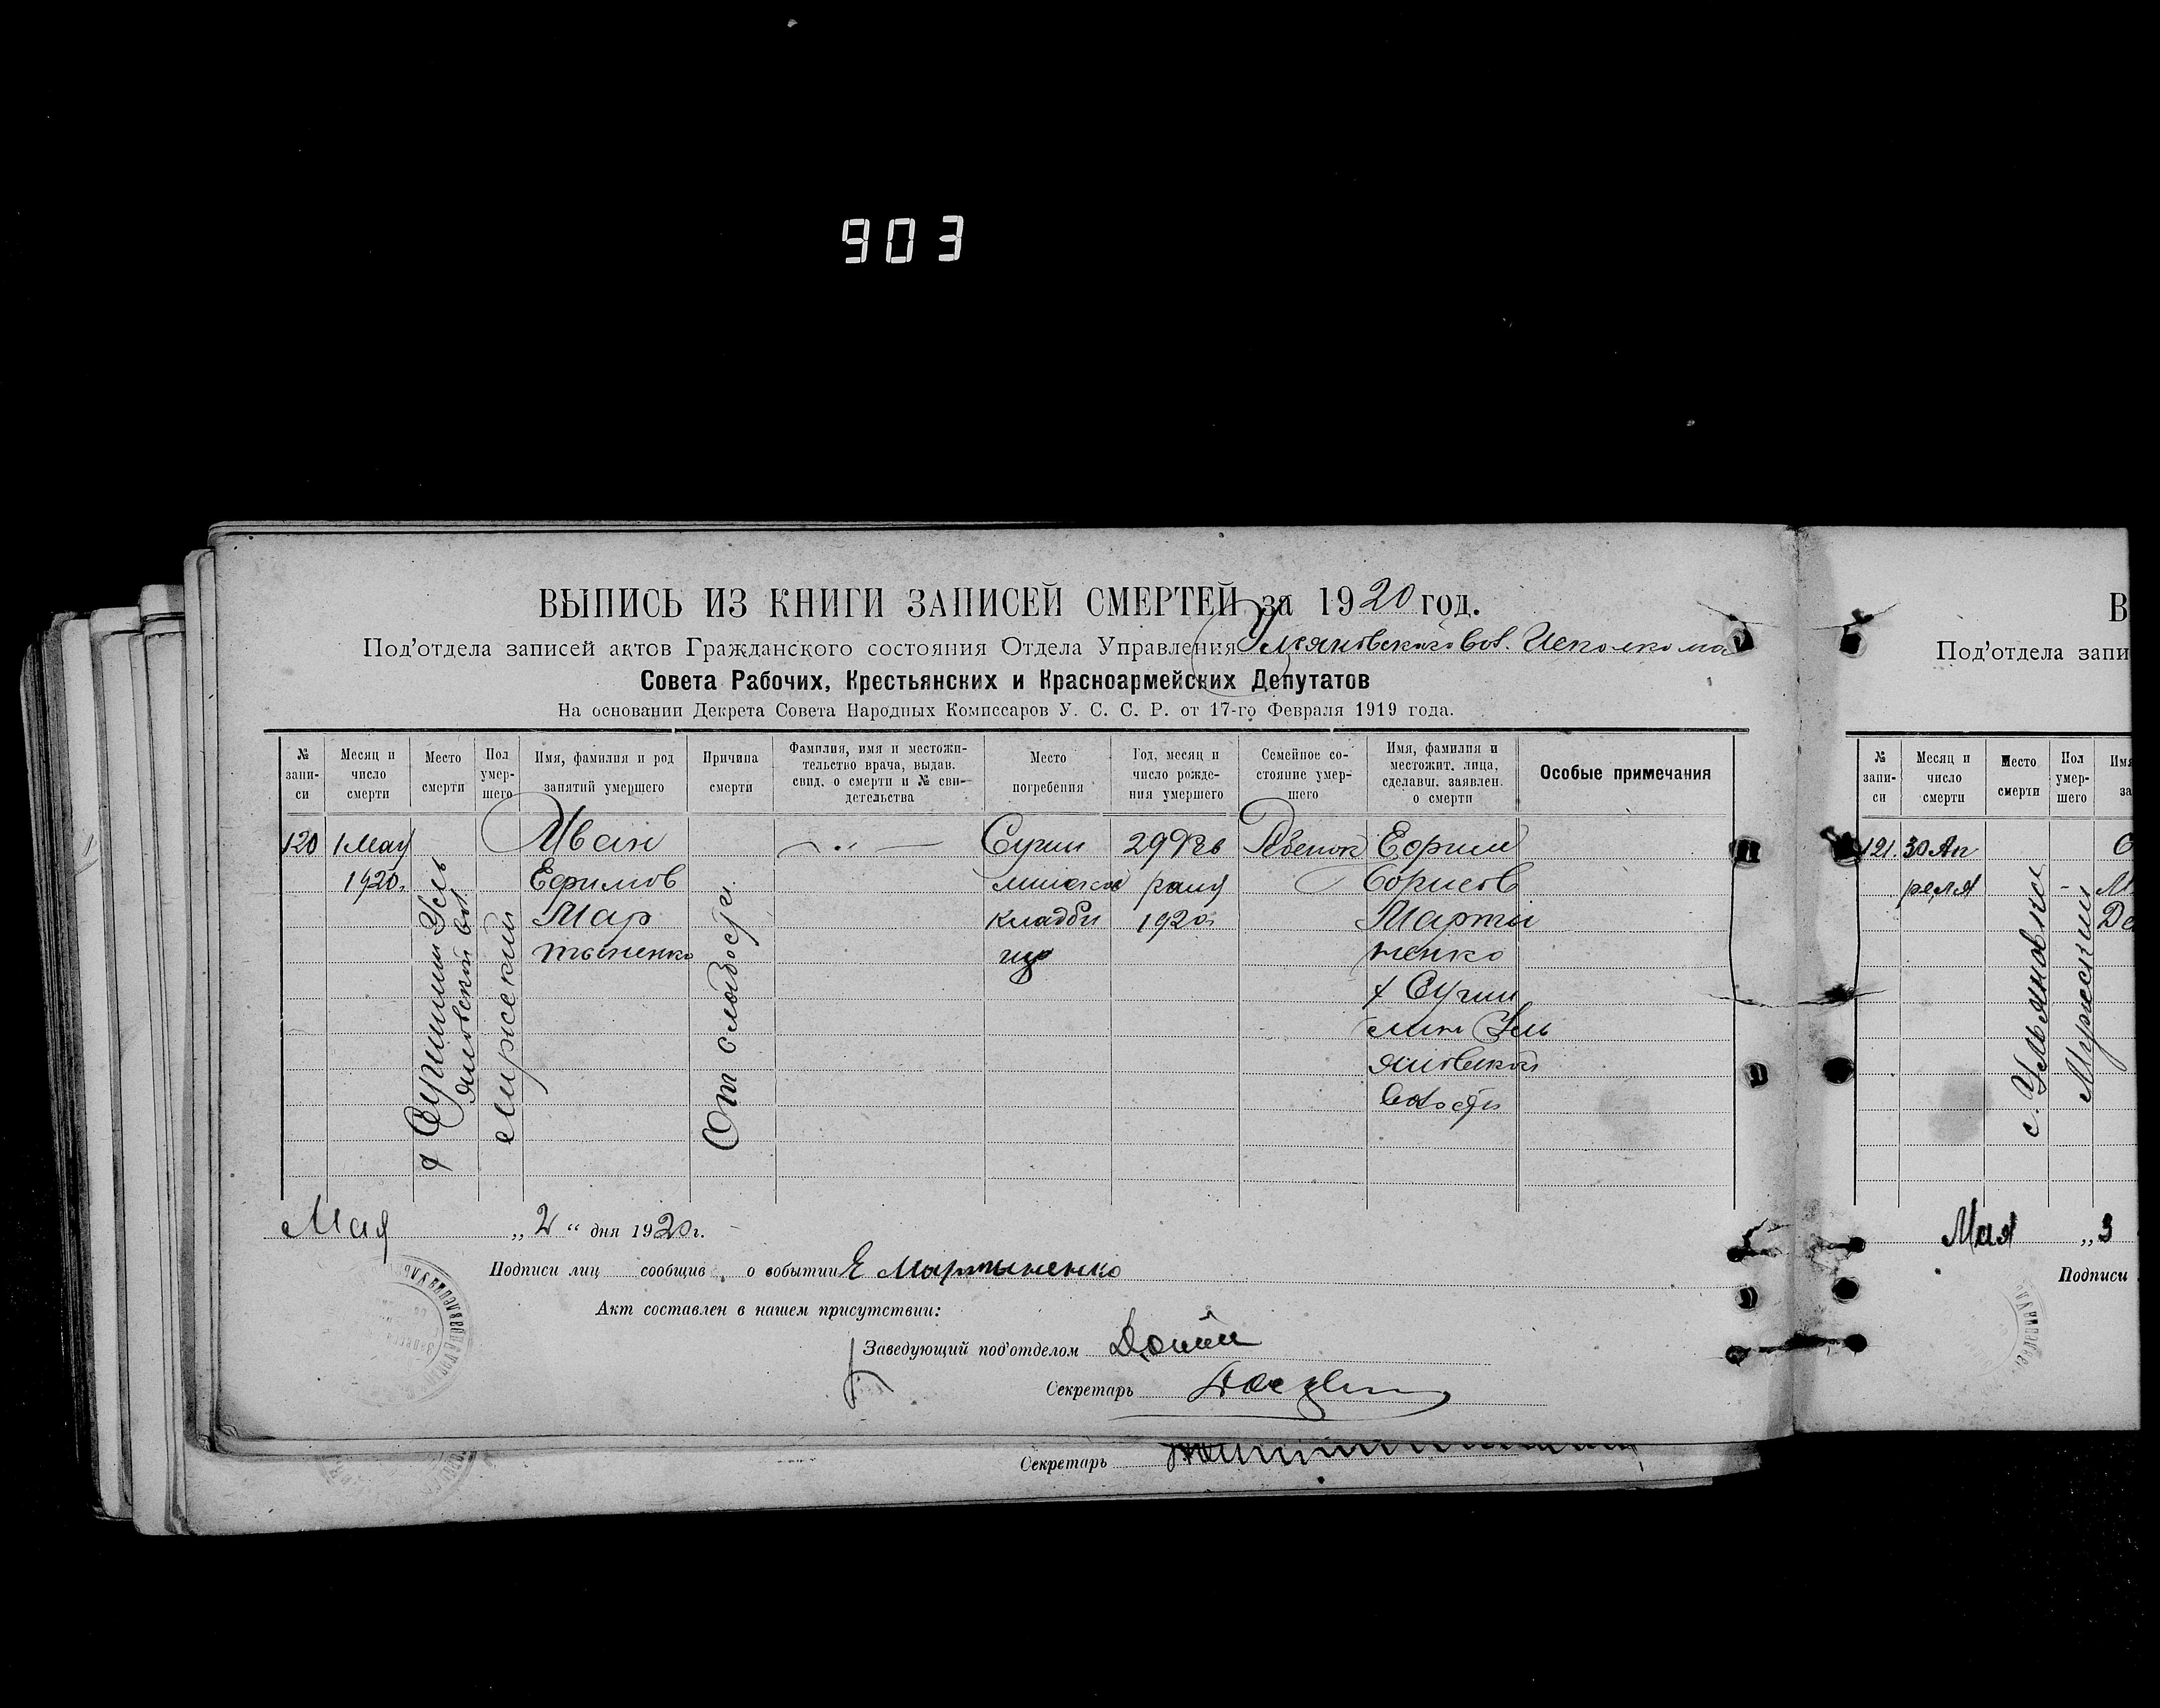 903
ВЫПИСЬ ИЗ КНИГИ ЗАПИСЕЙ СМЕРТЕЙ за 1920 год.
Под'отдела записей актов Гражданского состояния Отдела Управления Ульяновского вол. Исполкома
Совета Рабочих, Крестьянских и Красноармейских Депутатов
На основании Декрета Совета Народных Комиссаров У. С. С. Р. от 17-го Февраля 1919 года.
№ запи-
си
Месяц и
число
смерти
Место
смерти
Пол
умер-
шего
Имя, фамилия и род
занятий умершего
Причина
смерти
Фамилия, имя и местожи-
тельство врача, выдав.
свид. о смерти и № сви-
детельства
Место
погребения
Год, месяц и
число рожде-
ния умершего
Семейное со-
стояние умер-
шего
Имя, фамилия и
местожит. лица,
сделавш. заявлен.
о смерти
Особые примечания
120
1 Мая
1920.
Уль
яновской вол.
мужеский
Иван
Ефимов
Мар
тыненко
От слабости.
кладби
ще
29
1920
Ребенок
Ефим
Борисов
Марты
ненко
Уль
яновской
волости
Мая „2“ дня 1920 г.
Подписи лиц сообщив. о событии Е Мартыненко
Акт составлен в нашем присутствии:
Заведующий под'отделом
Секретарь
Секретарь
В
Под'отдела запи
№
запи-
си
Месяц и
число
смерти
Место
смерти
Пол
умер-
шего
Имя
за
121.
30 Ап
реля
с. Ульяновка
Мужеский
Мая „3
Подписи